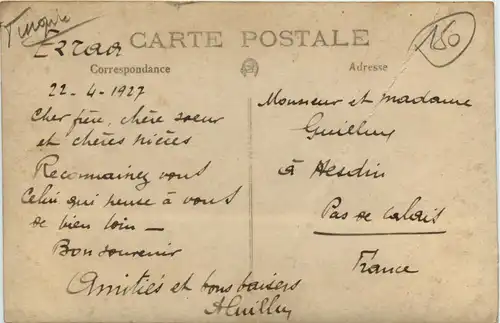 Turquie
CARTE POSTALE
150
Correspondance
Adresse
22-4-1927
Cher frère, chère soeur
et chères nièces
Reconnaissez vous
Celui qui pense à vous
de bien loin —
Bon souvenir
Amitiés et bons baisers
Monsieur et madame
à Hesdin
Pas de Calais
France